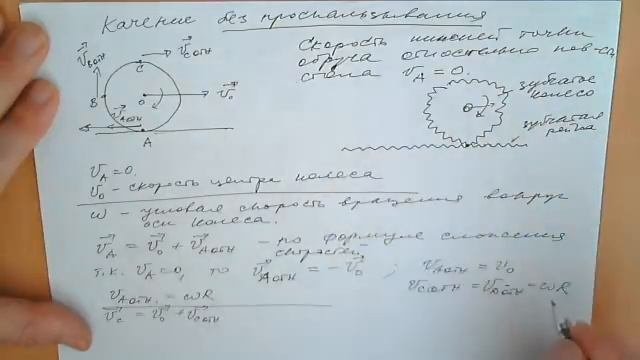 Качение без проскальзывания
Скорость нижней точки
обруча относительно пов-сти
стола v_A = 0.
v_Вотн
v_Сотн
C
B
O
v_0
v_Аотн
A
O
зубчатое
колесо
зубчатая
рейка
v_A = 0.
v_0 - скорость центра колеса
ω - угловая скорость вращения вокруг
оси колеса.
v_A = v_0 + v_Аотн - по формуле сложения
скоростей
т.к. v_A = 0, то v_Аотн = - v_0 ; v_Аотн = v_0
v_Аотн = ωR
v_Сотн = v_Аотн = ωR
v_C = v_0 + v_Сотн